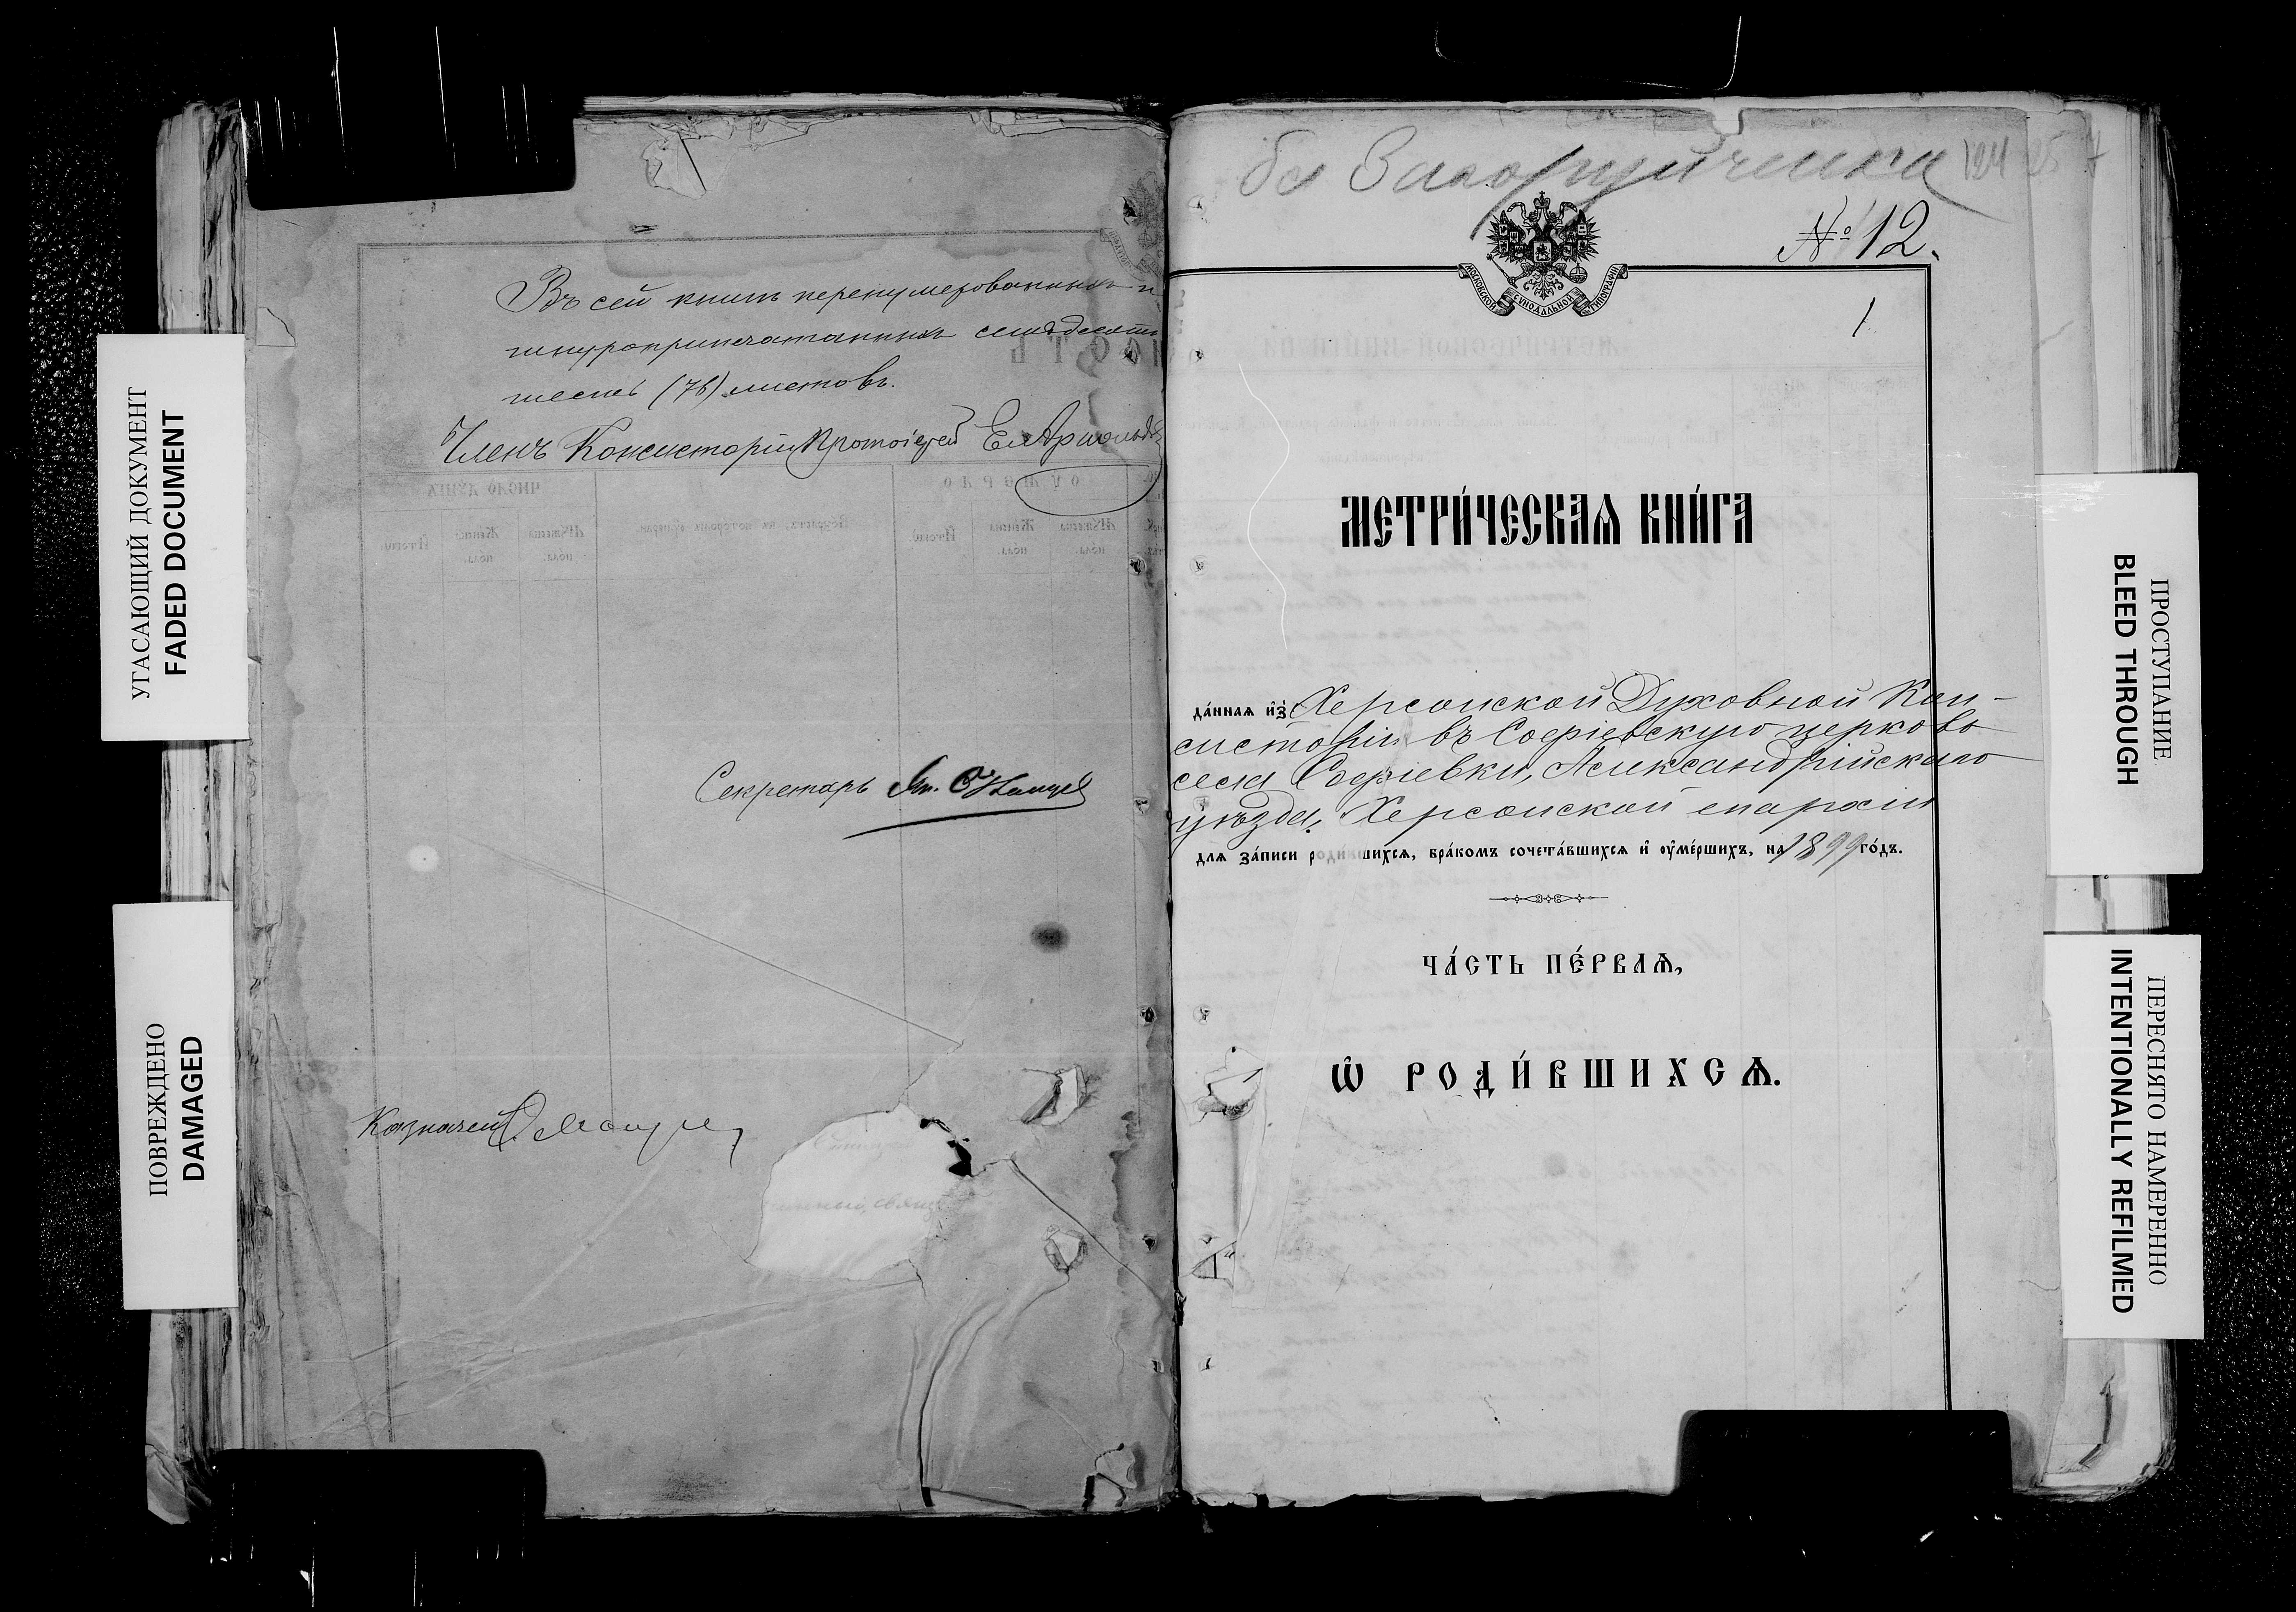 УГАСАЮЩИЙ ДОКУМЕНТ
FADED DOCUMENT
ПОВРЕЖДЕНО
DAMAGED
Въ сей книгѣ перенумерованныхъ и
шнуроприпечатанныхъ семьдесятъ
шесть (76) листовъ.
Членъ Консисторіи Протоіерей
ЧИСЛО
Мужеска пола.
Женска пола.
Итого.
Секретарь
Казначей
№ 12.
МОСКОВСКОЙ СѴНОДАЛЬНОЙ ТИПОГРАФІИ
1
МЕТРИ́ЧЕСКАѦ КНИ́ГА
да́ннаѧ и҆з̾ Херсонской Духовной Кон-
систоріи въ Софіевскую церковь
села Софіевки, Александрійскаго
уѣзда, Херсонской епархіи
длѧ за́писи родившихсѧ, бра́комъ сочета́вшихсѧ и҆ оу҆ме́ршихъ, на 1899 го́дъ.
ЧА́СТЬ ПЕ́РВАѦ,
Ѡ҆ РОДИ́ВШИХСѦ.
ПРОСТУПАНИЕ
BLEED THROUGH
ПЕРЕСНЯТО НАМЕРЕННО
INTENTIONALLY REFILMED